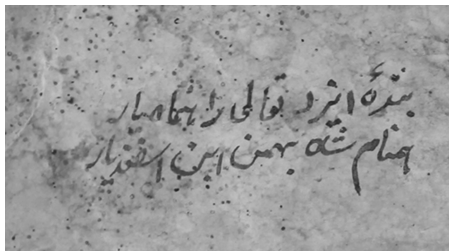 بندهٔ ایزد تعالی را
همنام شه بهمن ابن اسفندیار